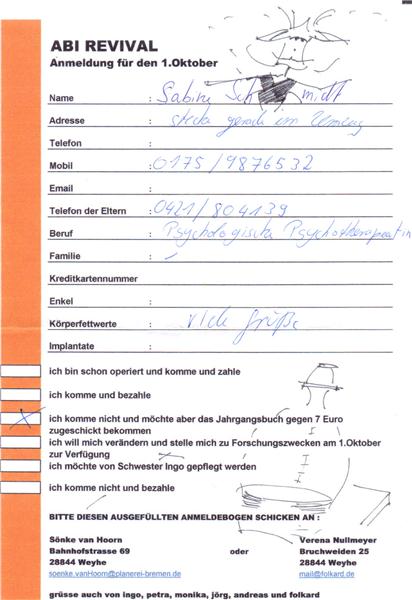 ABI REVIVAL
Anmeldung für den 1.Oktober
Name : Sabine Schmidt
Adresse : stecke gerade im Umzug
Telefon :
Mobil : 0175/9876532
Email :
Telefon der Eltern : 0421/804139
Beruf : Psychologische Psychotherapeutin
Familie : -
Kreditkartennummer
Enkel :
Körperfettwerte : viele Grüße
Implantate :
ich bin schon operiert und komme und zahle
ich komme und bezahle
x ich komme nicht und möchte aber das Jahrgangsbuch gegen 7 Euro
zugeschickt bekommen
ich will mich verändern und stelle mich zu Forschungszwecken am 1.Oktober
zur Verfügung
ich möchte von Schwester Ingo gepflegt werden
ich komme nicht und bezahle
BITTE DIESEN AUSGEFÜLLTEN ANMELDEBOGEN SCHICKEN AN :
Sönke van Hoorn oder Verena Nullmeyer
Bahnhofstrasse 69 Bruchweiden 25
28844 Weyhe 28844 Weyhe
soenke.vanHoorn@planerei-bremen.de mail@folkard.de
grüsse auch von ingo, petra, monika, jörg, andreas und folkard